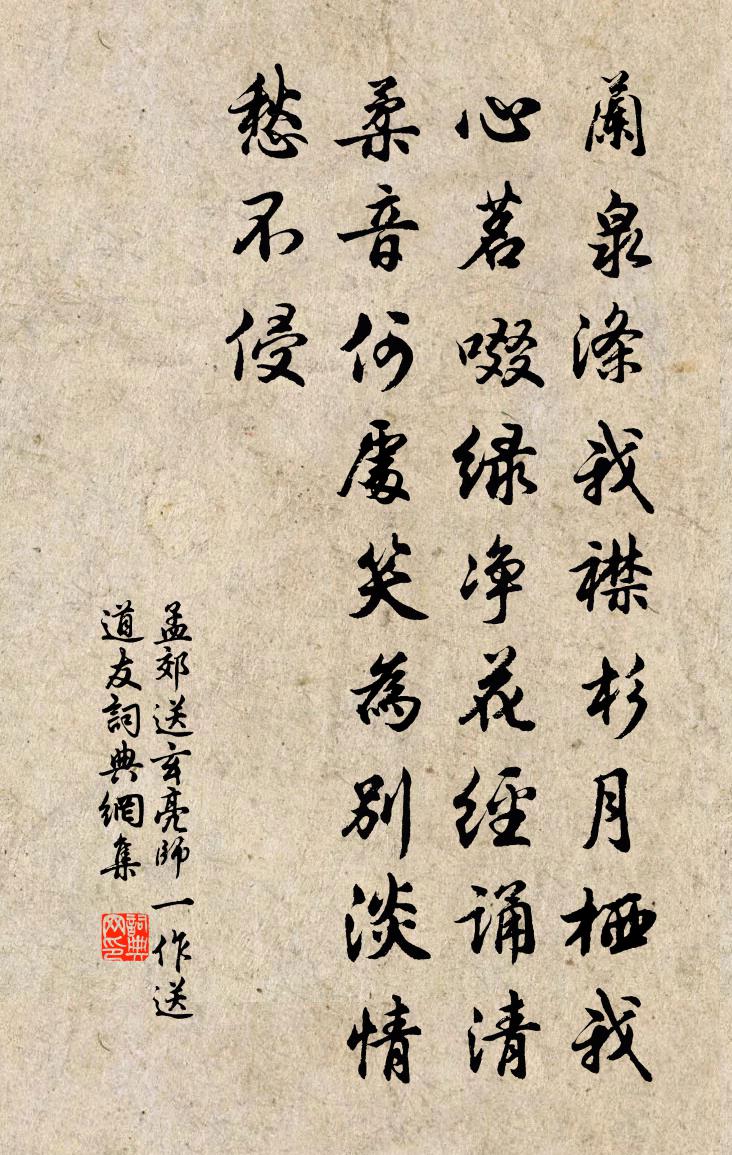 蘭泉滌我襟杉月栖我
心茗啜緑净花經誦清
柔音何處笑為别淡情
愁不侵
孟郊送玄亮師一作送
道友詞典網集
詞典网印